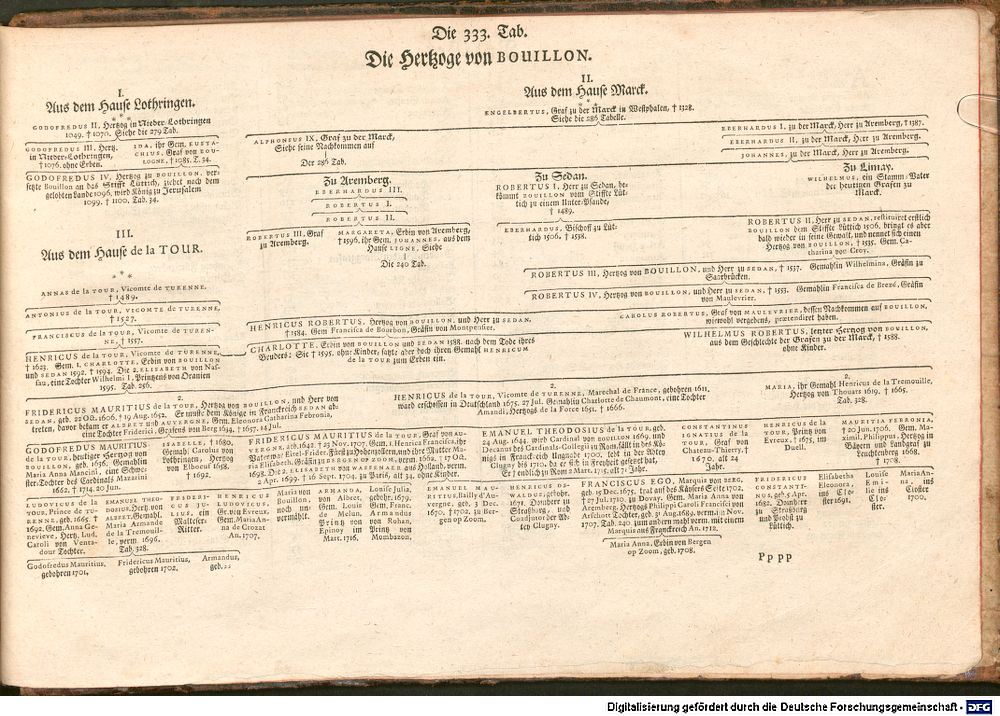 Die 333. Tab.
Die Hertzoge von BOUILLON.
I.
Aus dem Hause Lothringen.
* * *
GODOFREDUS II, Hertzog in Nieder-Lothringen
1049. † 1070. Siehe die 279 Tab.
GODOFREDUS III, Hertz.
in Nieder-Lothringen,
† 1076. ohne Erben.
IDA, ihr Gem. EUSTA-
CHIUS, Graf von BOU-
LOGNE, † 1085. T. 34.
GODOFREDUS IV, Hertzog zu BOUILLON, ver-
setzte Bouillon an das Stifft Lüttich, ziehet nach dem
gelobten Lande 1096, wird König zu Jerusalem
1099. † 1100. Tab. 34.
II.
Aus dem Hause Marck.
* *
ENGELBERTUS, Graf zu der Marck in Westphalen, † 1328.
Siehe die 286 Tabelle.
ALPHONSUS IX, Graf zu der Marck,
Siehe seine Nachkommen auf
Der 286 Tab.
EBERHARDUS I, zu der Marck, Herr zu Aremberg, † 1387.
EBERHARDUS II, zu der Marck, Herr zu Aremberg.
JOHANNES, zu der Marck, Herr zu Aremberg.
Zu Aremberg.
EBERHARDUS III.
ROBERTUS I.
ROBERTUS II.
ROBERTUS III, Graf
zu Aremberg.
MARGARETA, Erbin von Aremberg,
† 1596, ihr Gem. JOHANNES, aus dem
Hause LIGNE, Siehe
Die 240 Tab.
Zu Sedan.
ROBERTUS I, Herr zu Sedan, be-
kömmt BOUILLON vom Stiffte Lüt-
tich zu einem Unter-Pfande,
† 1489.
EBERHARDUS, Bischoff zu Lüt-
tich 1506. † 1538.
Zu Limay.
WILHELMUS, ein Stamm-Vater
der heutigen Grafen zu
Marck.
ROBERTUS II, Herr zu SEDAN, restituiret erstlich
BOUILLON dem Stiffte Lüttich 1506, bringt es aber
bald wieder in seine Gewalt, und nennet sich einen
Hertzog von BOUILLON, † 1535. Gem. Ca-
tharina von Croy.
ROBERTUS III, Hertzog von BOUILLON, und Herr zu SEDAN, † 1537. Gemahlin Wilhelmina, Gräfin zu
Saarbrücken.
ROBERTUS IV, Hertzog von BOUILLON, und Herr zu SEDAN, † 1553. Gemahlin Francisca de Brezé, Gräfin
von Maulevrier.
HENRICUS ROBERTUS, Hertzog von BOUILLON, und Herr zu SEDAN,
† 1584. Gem Francisca de Bourbon, Gräfin von Montpensier.
CAROLUS ROBERTUS, Graf von MAULEVRIER, dessen Nachkommen auf BOUILLON,
wiewohl vergebens, praetendiret haben.
CHARLOTTE, Erbin von BOUILLON und SEDAN 1588. nach dem Tode ihres
Bruders: Sie † 1595. ohne Kinder, satzte aber doch ihren Gemahl HENRICUM
de la TOUR zum Erben ein.
WILHELMUS ROBERTUS, letzter Hertzog von BOUILLON,
aus dem Geschlechte der Grafen zu der Marck, † 1588.
ohne Kinder.
III.
Aus dem Hause de la TOUR.
* * *
ANNAS de la TOUR, Vicomte de TURENNE,
† 1489.
ANTONIUS de la TOUR, VICOMTE de TURENNE,
† 1527.
FRANCISCUS de la TOUR, Vicomte de TUREN-
NE, † 1557.
HENRICUS de la TOUR, Vicomte de TURENNE,
† 1623. Gem. 1. CHARLOTTE, Erbin von BOUILLON
und SEDAN 1592, † 1594. Die 2. ELISABETH von Nas-
sau, eine Tochter Wilhelmi I. Printzens von Oranien
1595. Tab. 256.
2.
FRIDERICUS MAURITIUS de la TOUR, Hertzog von BOUILLON, und Herr von
SEDAN, geb. 22 Oct. 1606. † 19 Aug. 1652. Er muste dem Könige in Franckreich SEDAN ab-
treten, davor bekam er ALBRET und AUVERGNE, Gem. Eleonora Catharina Febronia,
eine Tochter Friderici, Grafens von Berg 1634, † 1657. 14 Jul.
2.
HENRICUS de la TOUR, Vicomte de TURENNE, Marechal de France, gebohren 1611,
ward erschossen in Deutschland 1675. 27 Jul. Gemahlin Charlotte de Chaumont, eine Tochter
Amandi, Hertzogs de la Force 1651. † 1666.
2.
MARIA, ihr Gemahl Henricus de la Tremouille,
Hertzog von Thouars 1619. † 1665.
Tab. 328.
GODOFREDUS MAURITIUS
de la TOUR, heutiger Hertzog von
BOUILLON, geb. 1636. Gemahlin
Maria Anna Mancini, eine Schwe-
ster-Tochter des Cardinals Mazarini
1662. † 1714. 20 Jun.
ISABELLE, † 1680,
Gemahl Carolus von
Lothringen, Hertzog
von Elboeuf 1658.
† 1692.
FRIDERICUS MAURITIUS de la TOUR, Graf von AU-
VERGNE, geb. 1642. † 23 Nov. 1707. Gem. 1. Henrica Francisca, ihr
Vater war Eitel-Frider. Fürst zu Hohenzollern, und ihre Mutter Ma-
ria Elisabeth, Gräfin zu BERGEN OP ZOOM, verm. 1662. † 17 Oct.
1698. Die 2. ELISABETH von WASSENAER aus Holland, verm.
2 Apr. 1699. † 16 Sept. 1704. zu Paris, alt 34, ohne Kinder.
EMANUEL THEODOSIUS de la TOUR, geb.
24 Aug. 1644, wird Cardinal von BOUILLON 1669, und
Decanus des Cardinals-Collegii zu Rom, fällt in des Kö-
nigs in Franckreich Ungnade 1700, lebt in der Abtey
Clugny bis 1710, da er sich in Freyheit gesetzet hat,
Er † endlich zu Rom 2 Mart. 1715. oss 7. Jahr.
CONSTANTINUS
IGNATIUS de la
TOUR, Graf von
Chateau-Thierry, †
1670, alt 24
Jahr.
HENRICUS de la
TOUR, Printz von
Evreux, † 1675, im
Duell.
MAURITIA FEBRONIA,
† 20 Jun. 1706. Gem. Ma-
ximil. Philippus, Hertzog in
Bäyern und Landgraf zu
Leuchtenberg 1668.
† 1708.
LUDOVICUS de la
TOUR, Prince de TU-
RENNE, geb. 1665. †
1692, Gem. Anna Ge-
nevieve, Hertz. Lud.
Caroli von Venta-
dour Tochter.
EMANUEL THEO-
DOSIUS, Hertz. von
ALBRET, Gemahl.
Maria Armande
de la Tremouil-
le, verm. 1696.
Tab. 328.
FRIDERI-
CUS JU-
LIUS, ein
Malteser-
Ritter.
HENRICUS
LUDOVICUS,
Gr. von Evreux,
Gem. Maria An-
na de Crozat
An. 1707.
Maria von
Bouillon,
noch un-
vermählt.
ARMANDA,
von Albret,
Gem. Louis
de Melun,
Printz von
Epinoy im
Mart. 1716.
Louise Julia,
gebohr. 1679.
Gem. Franc.
Armandus
von Rohan,
Printz von
Mombazon.
EMANUEL MAU-
RITIUS, Bailly d'Au-
vergne, geb. 3 Dec.
1670, † 1702, zu Ber-
gen op Zoom.
HENRICUS OS-
WALDUS, gebohr.
1671. Domherr zu
Straßburg, und
Coadjutor der Ab-
tey Clugny.
FRANCISCUS EGO, Marquis von BERG,
geb. 15 Dec. 1675, trat auf des Käysers Seite 1702,
† 27 Jul. 1710, zu Dovay, Gem. Maria Anna von
Aremberg, Hertzogs Philippi Caroli Francisci von
Arschott Tochter, geb. 31 Aug. 1689, verm. im Nov.
1707. Tab. 240. zum andern mahl verm. mit einem
Marquis aus Franckreich An. 1712.
FRIDERICUS
CONSTANTI-
NUS, geb. 5 Apr.
1682, Domherr
zu Straßburg
und Probst zu
Lüttich.
Elisabetha
Eleonora,
ins Clo-
ster 1691.
Louise
Æmilia,
ins
Clo-
ster.
Maria An-
na, ins
Closter
1700.
Godofredus Mauritius,
gebohren 1701,
Fridericus Mauritius,
gebohren 1702,
Armandus,
geb.
Maria Anna, Erbin von Bergen
op Zoom, geb. 1708.
Pppp
Digitalisierung gefördert durch die Deutsche Forschungsgemeinschaft - DFG